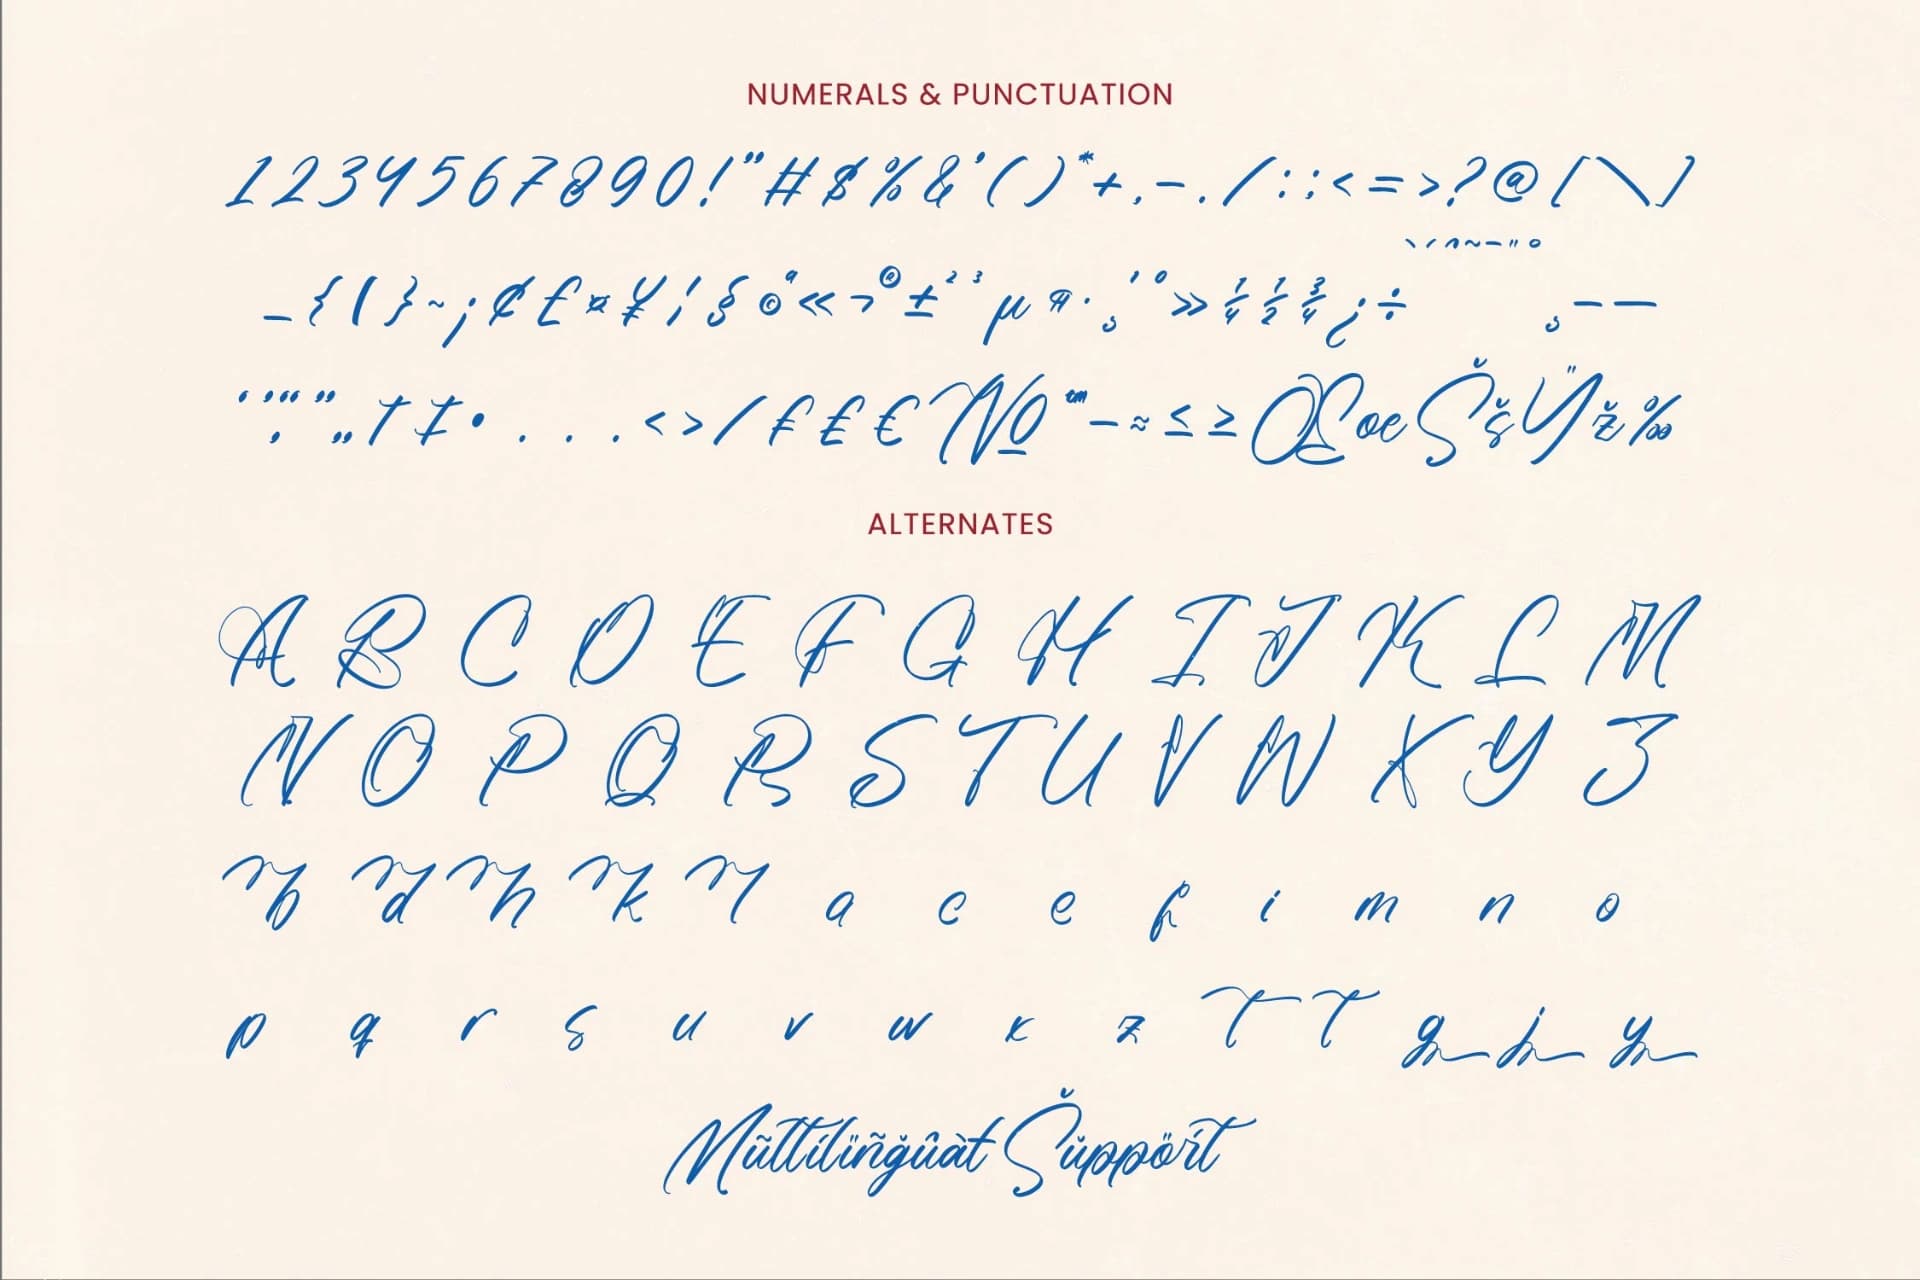 NUMERALS & PUNCTUATION
1 2 3 4 5 6 7 8 9 0 ! " # $ % & ' ( ) * + , - . / : ; < = > ? @ [ \ ]
_ { | } ~ ¡ ¢ £ ¤ ¥ ¦ § © ª « ¬ ® ± ² ³ µ ¶ · ¸ ¹ º » ¼ ½ ¾ ¿ ÷ ˛ – —
‘ ’ ‚ “ ” „ † ‡ • . . . < > / ₣ ₤ € № ™ − ≈ ≤ ≥ Œ œ Š š Ÿ ž ‰
ALTERNATES
A B C D E F G H I J K L M
N O P Q R S T U V W X Y Z
b d h k l a c e f i m n o
p q r s u v w x z T T g j y
Mũttílïñğûàt Šŭppöŕt